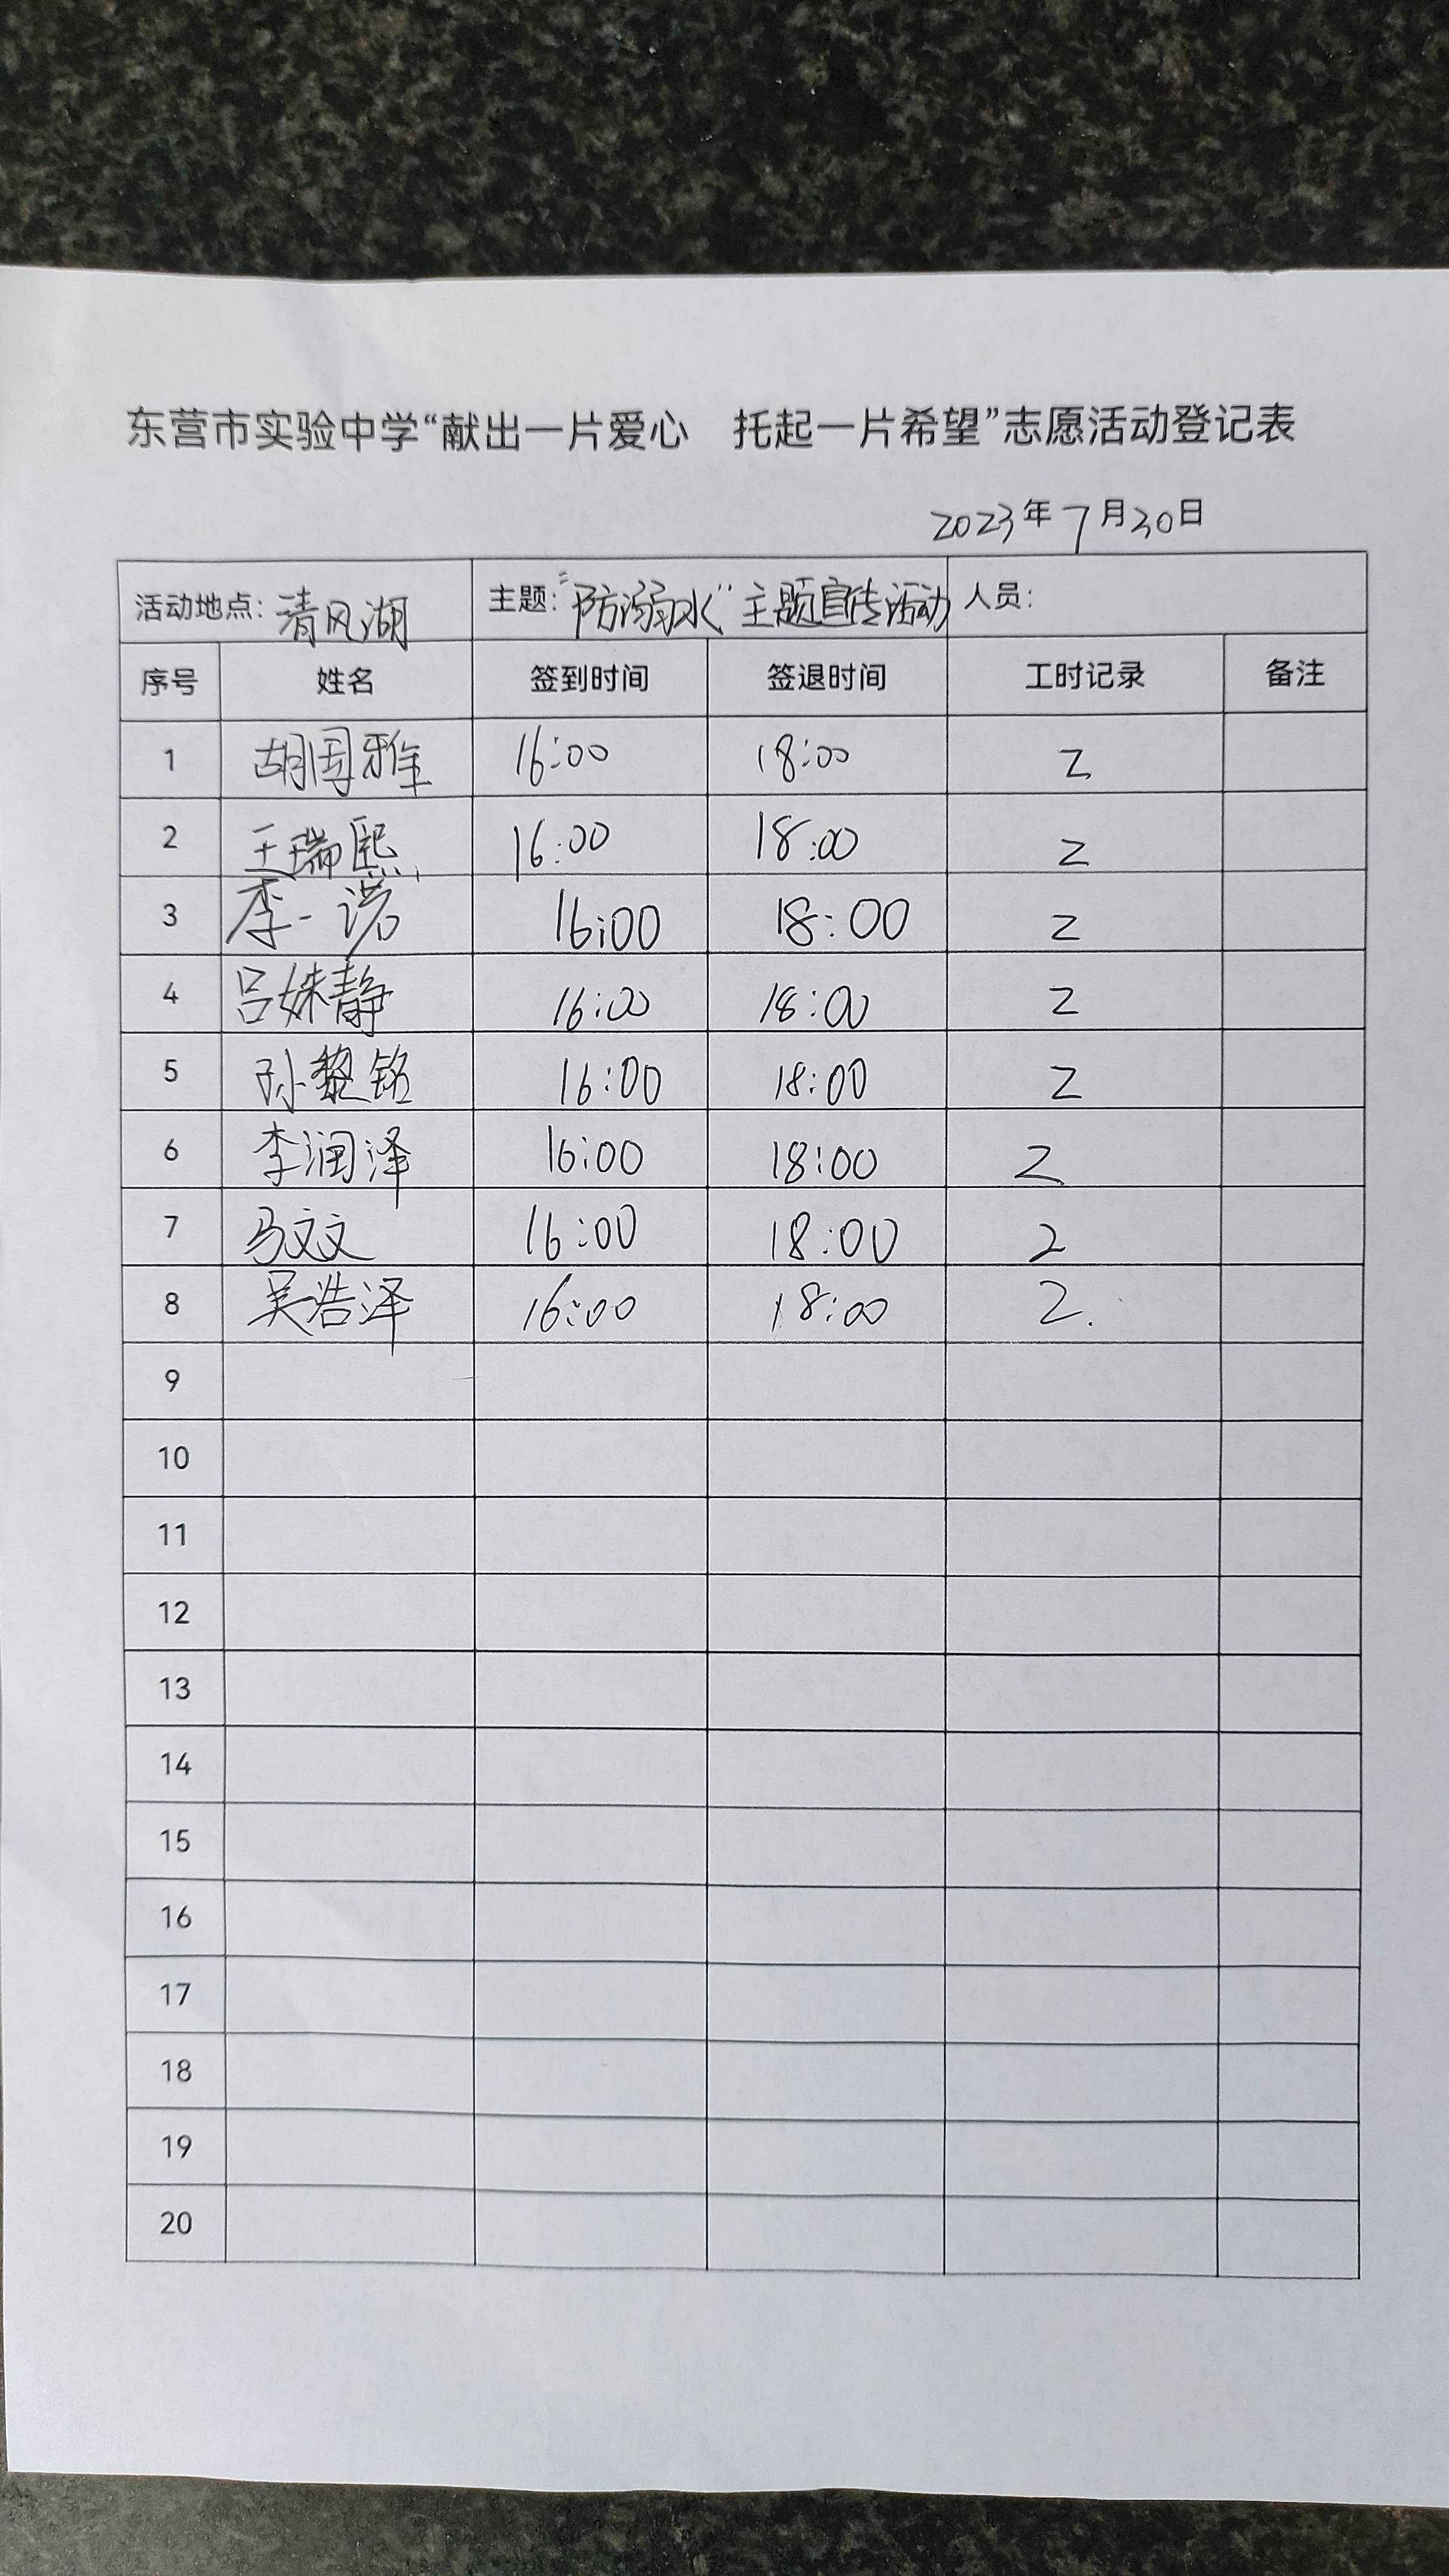 东营市实验中学“献出一片爱心 托起一片希望”志愿活动登记表
2023年7月30日
活动地点：清风湖 主题：“防溺水”主题宣传活动 人员：
序号 姓名 签到时间 签退时间 工时记录 备注
1 胡国雅 16:00 18:00 2
2 王瑞熙 16:00 18:00 2
3 李一诺 16:00 18:00 2
4 吕姝静 16:00 18:00 2
5 孙黎铭 16:00 18:00 2
6 李润泽 16:00 18:00 2
7 马文文 16:00 18:00 2
8 吴浩泽 16:00 18:00 2.
9
10
11
12
13
14
15
16
17
18
19
20